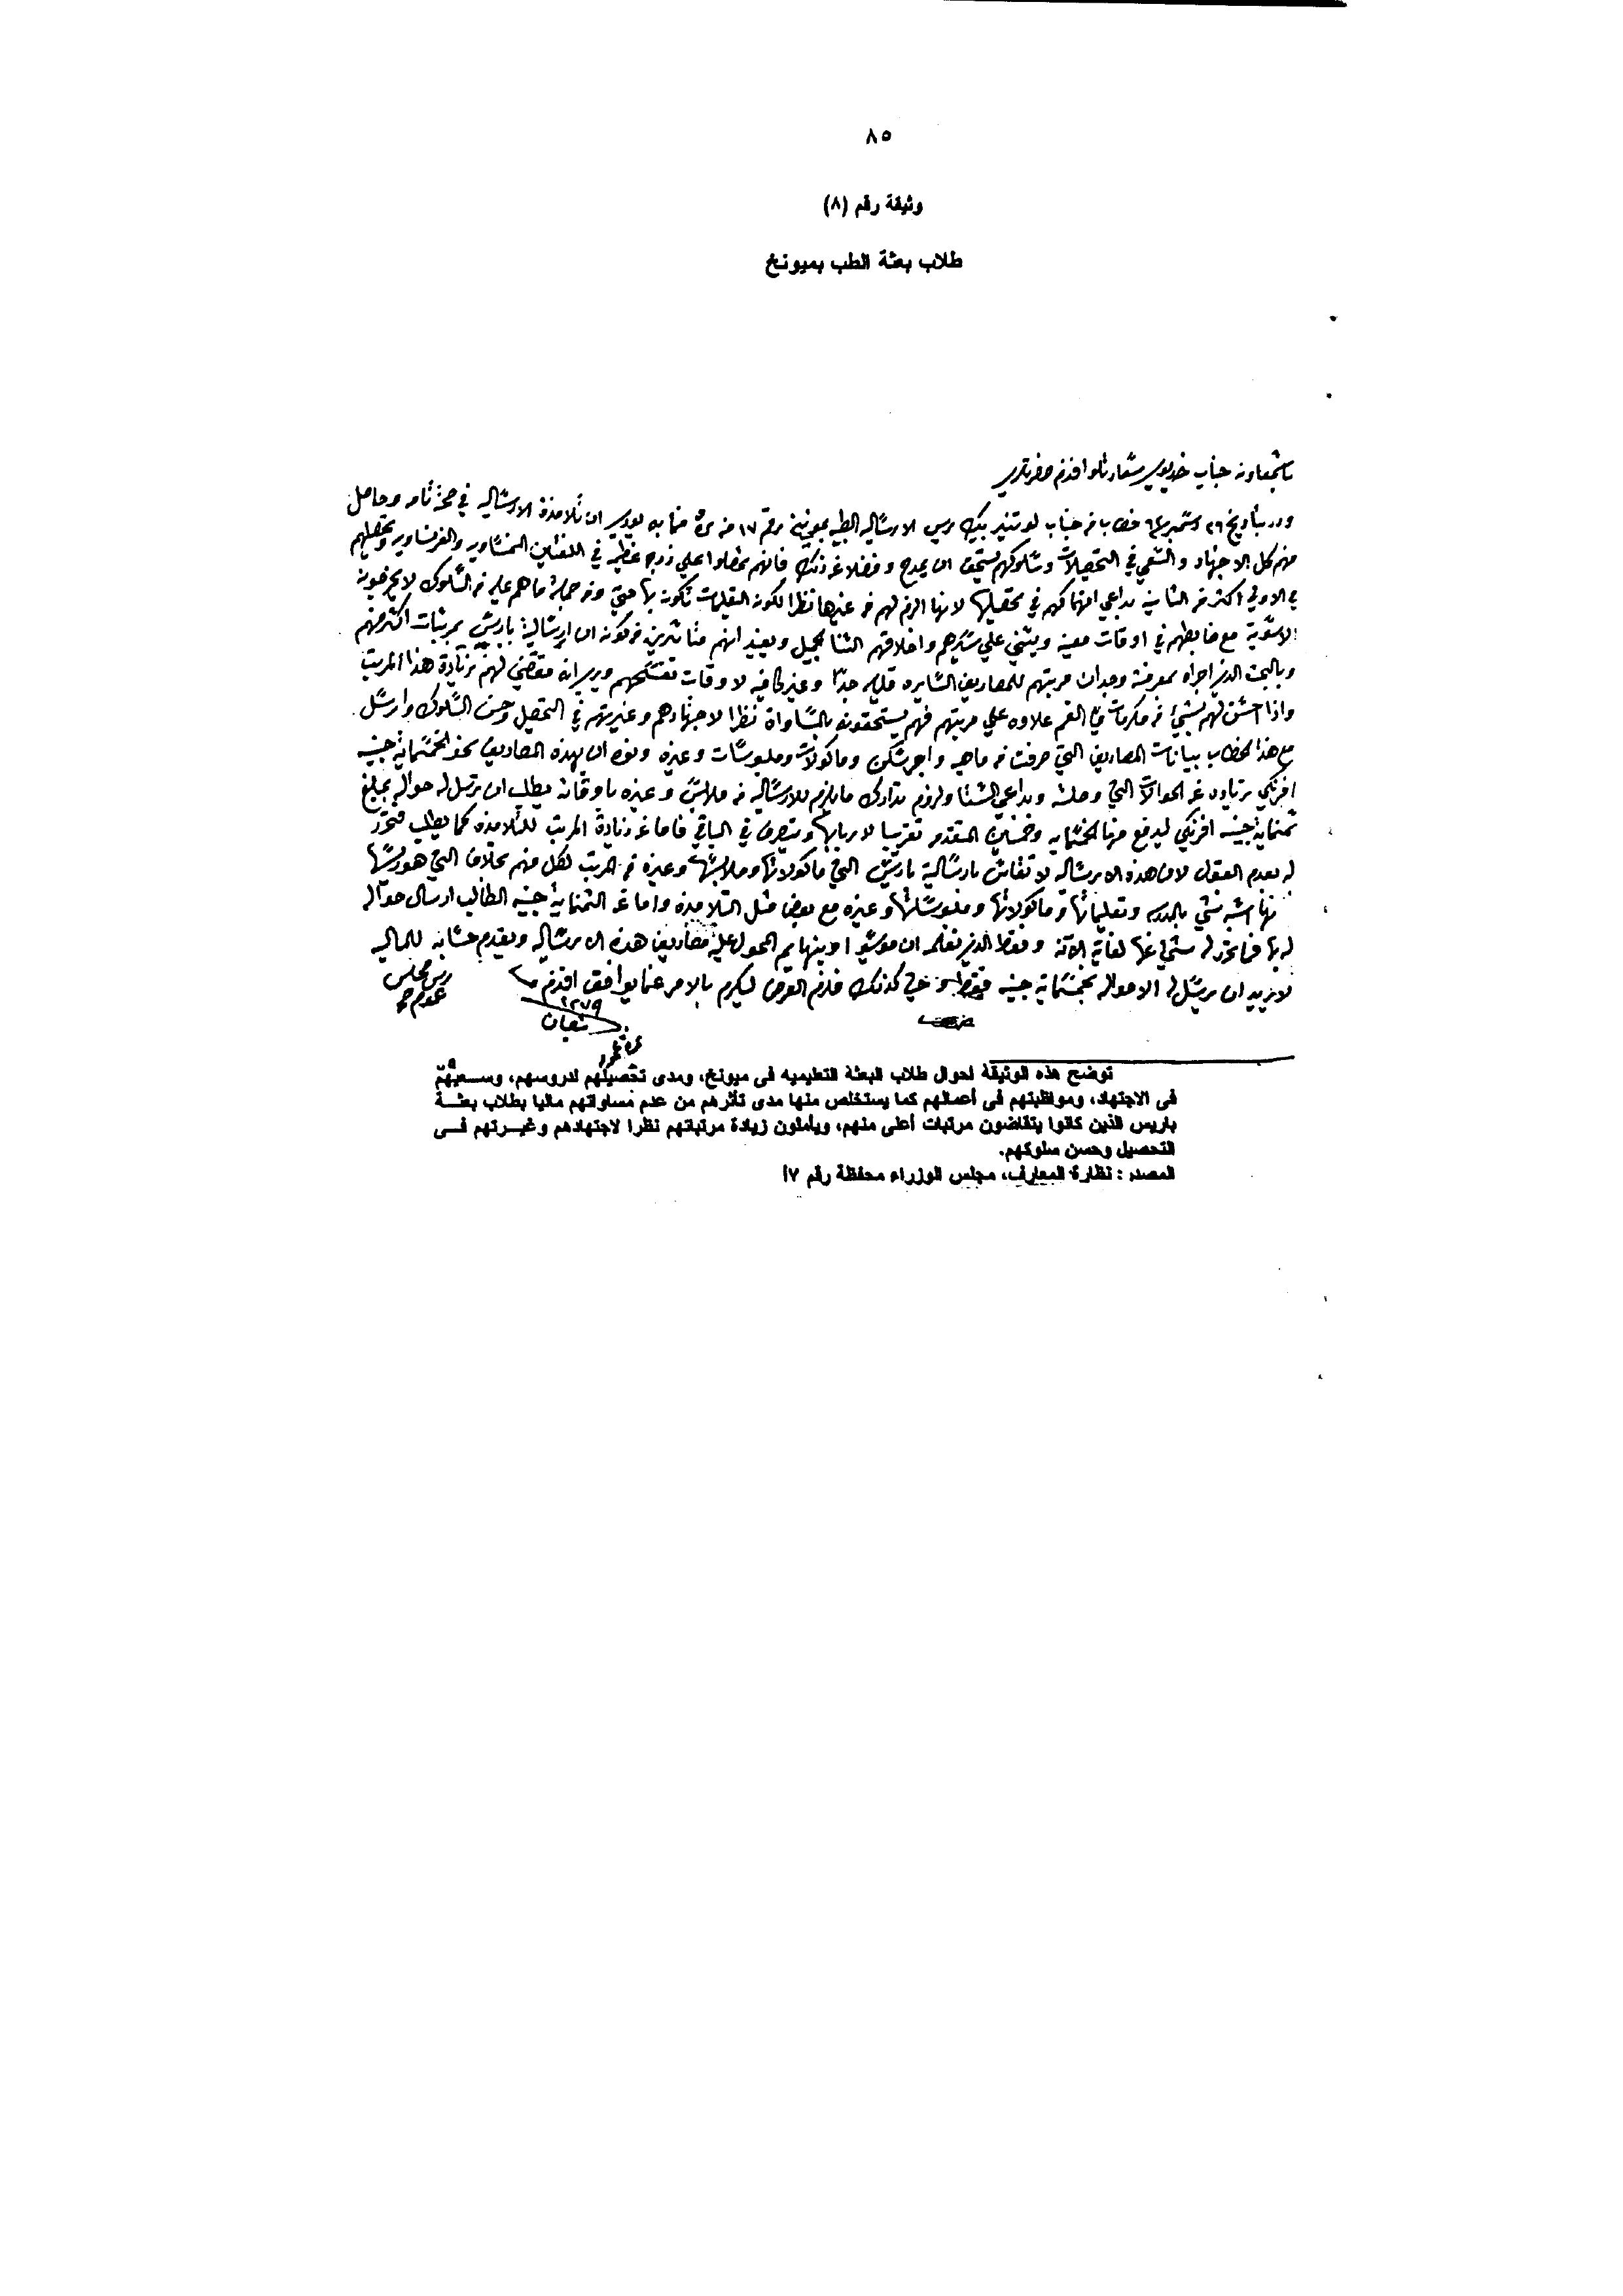 ٨٥
وثيقة رقم (٨)
طلاب بعثة الطب بميونخ
جناب خديوي سعادتلو افندم حضرتلري
ورد بتاريخ ٢٦ خطاب من جناب بيك الارساليه الطبيه رقم ١٧ ان تلامذة الارساليه في صحة تامه وحاصل
منهم كل الاجتهاد والسعي في التحصيلات وسلوكهم يستحق ان يمدح وفضلا عن ذلك فانهم تحصلوا على درجه عظيمه في اللغتين النمساويه والفرنساويه وتحصيلهم
في الاولى اكثر من الثانيه بداعي انهماكهم في تحصيلها لانها الزم لهم من غيرها نظرا لكون التعليمات تكون بها حتى ومن جملة ما هم عليه من السلوك لا يخرجون
الا سوية مع ضابطهم في اوقات معينه ويثني على سيرهم واخلاقهم الثنا الجميل ويفيد انهم متأثرين من كون ان ارسالية باريس بمرتبات اكثر منهم
وبالبحث الذي اجراه بمعرفته وجد ان مرتبهم للمصاريف السايره قليله جدا وغير كافيه لاوقات ويرى انه مقتضي لهم زيادة هذا المرتب
واذا لهم بشيء من مكرمات علاوه على مرتبهم فهم يستحقون بالمساواة نظرا لاجتهادهم وغيرتهم في التحصيل وحسن السلوك وارسل
مع هذا الخطاب بيانات المصاريف التي صرفت من ماهيه واجر سكن وماكولات وملبوسات وغيره ونوه ان بهذه المصاريف نحو الخمسماية جنيه
افرنكي زياده عن الحوالات التي وصلته وبداعي الشتا ولزوم تدارك ما يلزم للارساليه من ملابس وغيره باوقاته يطلب ان ترسل له حواله بمبلغ
ثمنماية جنيه افرنكي ليدفع منها الخمسمايه وخمسين المتقدم تقريبا لاربابها ويتصرف في الباقي فاما عن زيادة المرتب للتلامذه كما يطلب فتحرر
له بعدم القبول لان هذه الارساليه لا تقاس بارسالية باريس التي ماكولاتها وملابسها وغيره من المرتب لكل منهم بخلاف التي هو
فانها اشبه شيء بالمدرسه وتعليماتها وماكولاتها وملبوساتها وغيره مع بعض مثل التلامذه واما عن الثمنماية جنيه الطالب ارسال حواله
له بها فما تحرر له شيء عنها لغاية الآن وفقط الذي نعلمه ان موسيو المحول عليه مصاريف هذه الارساليه ويقدم حسابه للماليه
لا يريد ان يرسل له الا حواله بخمسماية جنيه فقط كذلك فلزم العرض ليكرم بالامر عنما يوافق افندم
رئيس مجلس
عموم
١٢٧٩
شعبان
توضح هذه الوثيقة احوال طلاب البعثة التعليميه فى ميونخ، ومدى تحصيلهم لدروسهم، وسعيهم
فى الاجتهاد، ومواظبتهم فى أعمالهم كما يستخلص منها مدى تأثرهم من عدم مساواتهم ماليا بطلاب بعثة
باريس الذين كانوا يتقاضون مرتبات أعلى منهم، ويأملون زيادة مرتباتهم نظرا لاجتهادهم وغيرتهم فى
التحصيل وحسن سلوكهم.
المصدر : نظارة المعارف، مجلس الوزراء محفظة رقم ٧أ